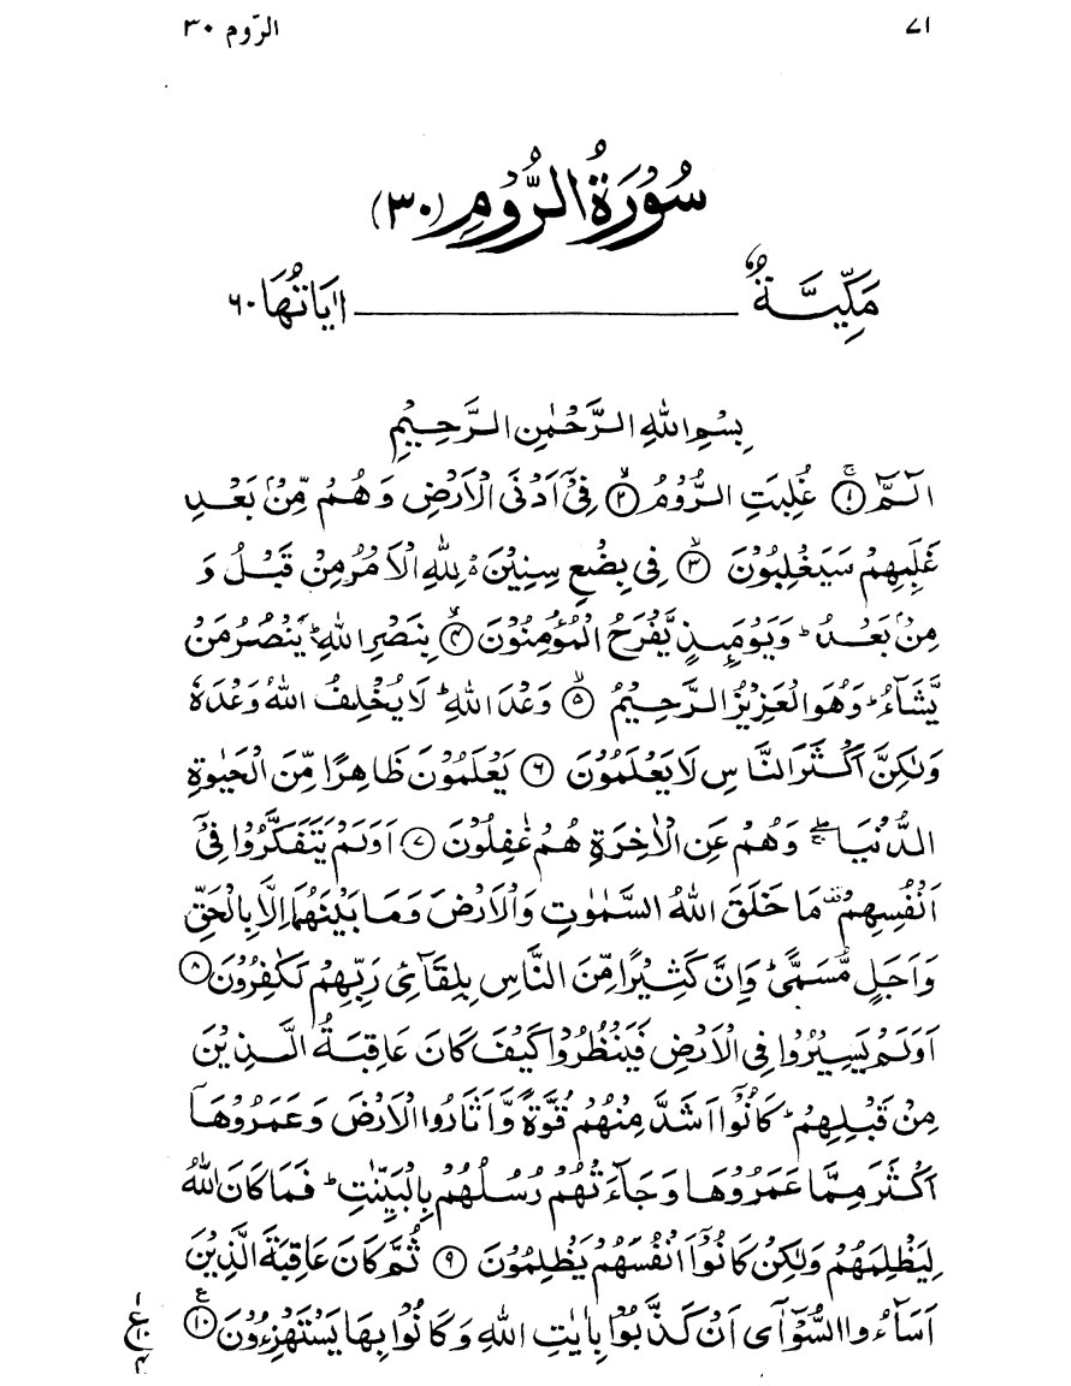 ٧١ الرّوم ٣٠
سُوْرَةُ الرُّوْمِ (٣٠)
مَكِّيَّةٌ اٰيَاتُهَا ٦٠
بِسْمِ اللّٰهِ الرَّحْمٰنِ الرَّحِيْمِ
الٓمّٓ ۚ ۝١ غُلِبَتِ الرُّوْمُ ۙ ۝٢ فِيْٓ اَدْنَى الْاَرْضِ وَهُمْ مِّنْۢ بَعْدِ
غَلَبِهِمْ سَيَغْلِبُوْنَ ۙ ۝٣ فِيْ بِضْعِ سِنِيْنَ ۥ لِلّٰهِ الْاَمْرُ مِنْ قَبْلُ وَ
مِنْۢ بَعْدُ ؕ وَيَوْمَىِٕذٍ يَّفْرَحُ الْمُؤْمِنُوْنَ ۙ ۝٤ بِنَصْرِ اللّٰهِ ؕ يَنْصُرُ مَنْ
يَّشَآءُ ؕ وَهُوَ الْعَزِيْزُ الرَّحِيْمُ ۙ ۝٥ وَعْدَ اللّٰهِ ؕ لَا يُخْلِفُ اللّٰهُ وَعْدَهٗ
وَلٰكِنَّ اَكْثَرَ النَّاسِ لَا يَعْلَمُوْنَ ۝٦ يَعْلَمُوْنَ ظَاهِرًا مِّنَ الْحَيٰوةِ
الدُّنْيَا ۖۚ وَهُمْ عَنِ الْاٰخِرَةِ هُمْ غٰفِلُوْنَ ۝٧ اَوَلَمْ يَتَفَكَّرُوْا فِيْٓ
اَنْفُسِهِمْ ۫ مَا خَلَقَ اللّٰهُ السَّمٰوٰتِ وَالْاَرْضَ وَمَا بَيْنَهُمَآ اِلَّا بِالْحَقِّ
وَاَجَلٍ مُّسَمًّى ؕ وَاِنَّ كَثِيْرًا مِّنَ النَّاسِ بِلِقَآئِ رَبِّهِمْ لَكٰفِرُوْنَ ۝٨
اَوَلَمْ يَسِيْرُوْا فِي الْاَرْضِ فَيَنْظُرُوْا كَيْفَ كَانَ عَاقِبَةُ الَّذِيْنَ
مِنْ قَبْلِهِمْ ؕ كَانُوْٓا اَشَدَّ مِنْهُمْ قُوَّةً وَّاَثَارُوا الْاَرْضَ وَعَمَرُوْهَآ
اَكْثَرَ مِمَّا عَمَرُوْهَا وَجَآءَتْهُمْ رُسُلُهُمْ بِالْبَيِّنٰتِ ؕ فَمَا كَانَ اللّٰهُ
لِيَظْلِمَهُمْ وَلٰكِنْ كَانُوْٓا اَنْفُسَهُمْ يَظْلِمُوْنَ ۝٩ ثُمَّ كَانَ عَاقِبَةَ الَّذِيْنَ
اَسَآءُوا السُّوْٓآٰى اَنْ كَذَّبُوْا بِاٰيٰتِ اللّٰهِ وَكَانُوْا بِهَا يَسْتَهْزِءُوْنَ ۝١٠ ع